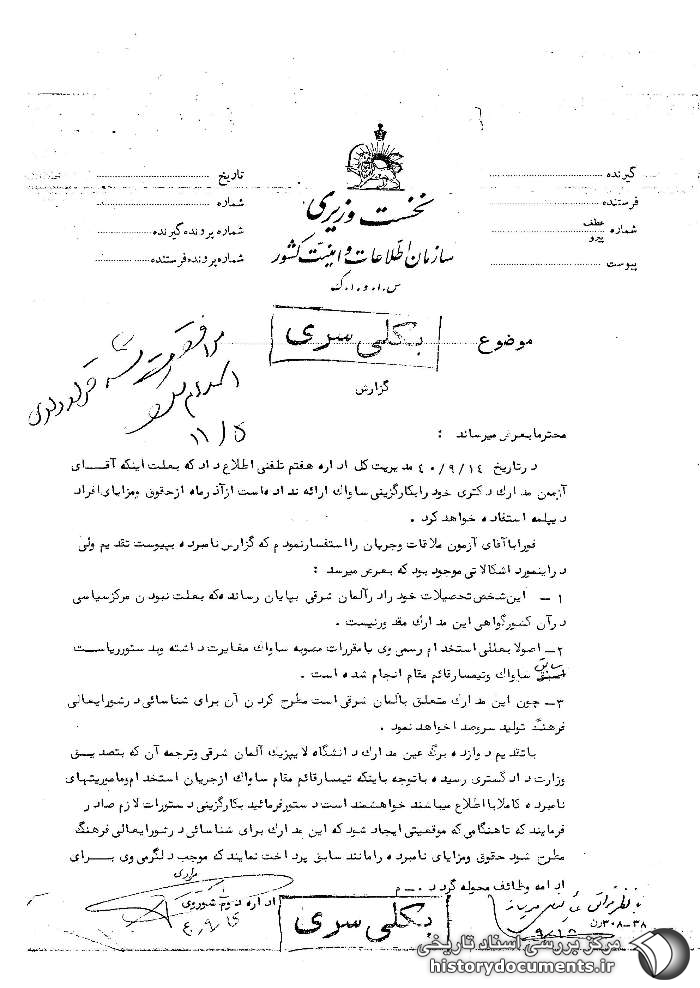 گیرنده
فرستنده
شماره عطف
پیرو
پیوست
نخست وزیری
سازمان اطلاعات و امنیت کشور
س.ا.و.ا.ک
تاریخ
شماره
شماره پرونده گیرنده
شماره پرونده فرستنده
موضوع
بکلی سری
گزارش
۱۱/۵
محترما بعرض میرساند :
در تاریخ ۴۰/۹/۱۴ مدیریت کل اداره هفتم تلفنی اطلاع داد که بعلت اینکه آقای
آزمون مدارک دکتری خود را بکارگزینی ساواک ارائه نداده است از آذر ماه از حقوق و مزایای افراد
دیپلمه استفاده خواهد کرد .
فورا با آقای آزمون ملاقات و جریان را استفسار نمودم که گزارش نامبرده بپیوست تقدیم ولی
در اینمورد اشکالاتی موجود بود که بعرض میرسد :
۱ – این شخص تحصیلات خود را در آلمان شرقی بپایان رسانده که بعلت نبودن مرکز سیاسی
در آن کشور گواهی این مدارک مقدور نیست .
۲– اصولا بعللی استخدام رسمی وی با مقررات مصوبه ساواک مغایرت داشته و بدستور ریاست
سابق ساواک و تیمسار قائم مقام انجام شده است .
۳– چون این مدارک متعلق بآلمان شرقی است مطرح کردن آن برای شناسائی در شورایعالی
فرهنگ تولید سروصدا خواهد نمود .
با تقدیم دوازده برگ عین مدارک دانشگاه لایپزیک آلمان شرقی و ترجمه آن که بتصدیق
وزارت دادگستری رسیده با توجه باینکه تیمسار قائم مقام ساواک از جریان استخدام و ماموریتهای
نامبرده کاملا با اطلاع میباشند خواهشمند است دستور فرمائید بکارگزینی دستورات لازم صادر
فرمایند که تا هنگامی که موقعیتی ایجاد شود که این مدارک برای شناسائی در شورایعالی فرهنگ
مطرح شود حقوق و مزایای نامبرده را مانند سابق پرداخت نمایند که موجب دلگرمی وی برای
ادامه وظائف محوله گردد . م
اداره دوم
بکلی سری
۳۸–۳۰۸ن
مرکز بررسی اسناد تاریخی
historydocuments.ir